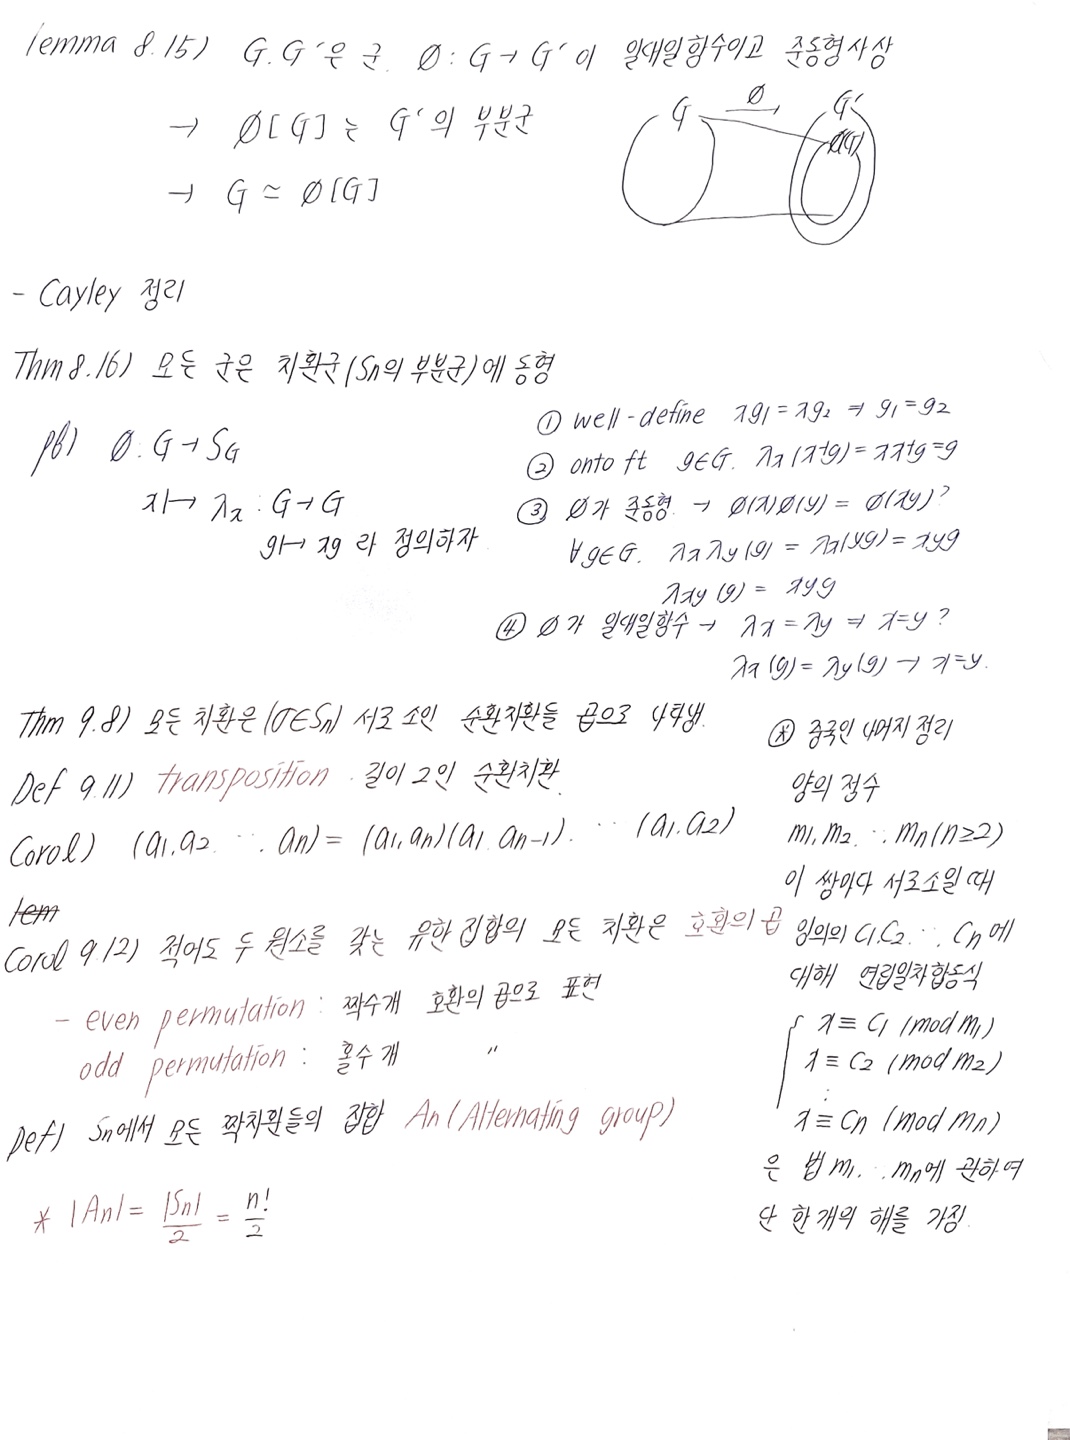 lemma 8.15) G.G'은 군. Ø : G → G'이 일대일함수이고 준동형사상
→ Ø[G]는 G'의 부분군
→ G ≃ Ø[G]
G Ø→ G'
Ø(G)
- Cayley 정리
Thm 8.16) 모든 군은 치환군(Sn의 부분군)에 동형
pf) Ø : G → SG
x ↦ λx : G → G
g ↦ xg 라 정의하자
① well-define xg1 = xg2 ⇒ g1 = g2
② onto ft g∈G. λx(x⁻¹g) = xx⁻¹g = g
③ Ø가 준동형 → Ø(x)Ø(y) = Ø(xy)?
∀g∈G. λxλy(g) = λx(yg) = xyg
λxy(g) = xyg
④ Ø가 일대일함수 → λx = λy ⇒ x=y?
λx(g) = λy(g) → x=y.
Thm 9.8) 모든 치환은(σ∈Sn) 서로 소인 순환치환들 곱으로 나타냄.
Def 9.11) transposition . 길이 2인 순환치환.
Corol) (a1,a2 ··· , an) = (a1,an)(a1 an-1). ··· (a1.a2)
lem
Corol 9.12) 적어도 두 원소를 갖는 유한집합의 모든 치환은 호환의 곱
- even permutation : 짝수개 호환의 곱으로 표현
odd permutation : 홀수개 〃
Def) Sn에서 모든 짝치환들의 집합 An(Alternating group)
* |An| = |Sn|/2 = n!/2
⊛ 중국인 나머지 정리
양의 정수
m1, m2 ··· mn(n≥2)
이 쌍마다 서로소일 때
임의의 C1.C2. ··· Cn에
대해 연립일차합동식
x ≡ C1 (mod m1)
x ≡ C2 (mod m2)
⋮
x ≡ Cn (mod mn)
은 법 m1. ··· mn에 관하여
단 한개의 해를 가짐.